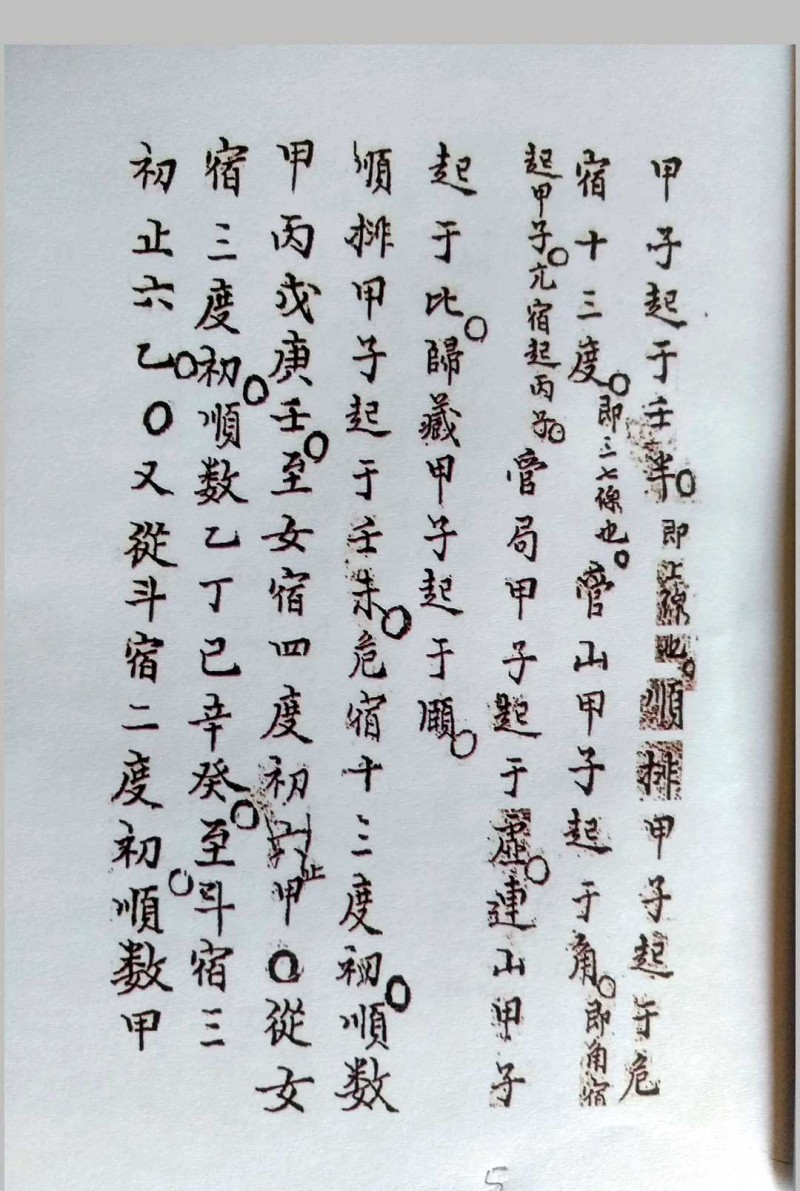 甲子起于壬半○即上線也○順排甲子起于危
宿十三度○即三七線也○管山甲子起于角○即角宿
起甲子○亢宿起丙子○管局甲子起于虛○連山甲子
起于比○歸藏甲子起于頤○
順排甲子起于壬未○危宿十三度初○順数
甲丙戊庚壬○至女宿四度初止六甲○從女
宿三度初○順数乙丁巳辛癸○至斗宿三
初止六乙○○又從斗宿二度初○順数甲
5